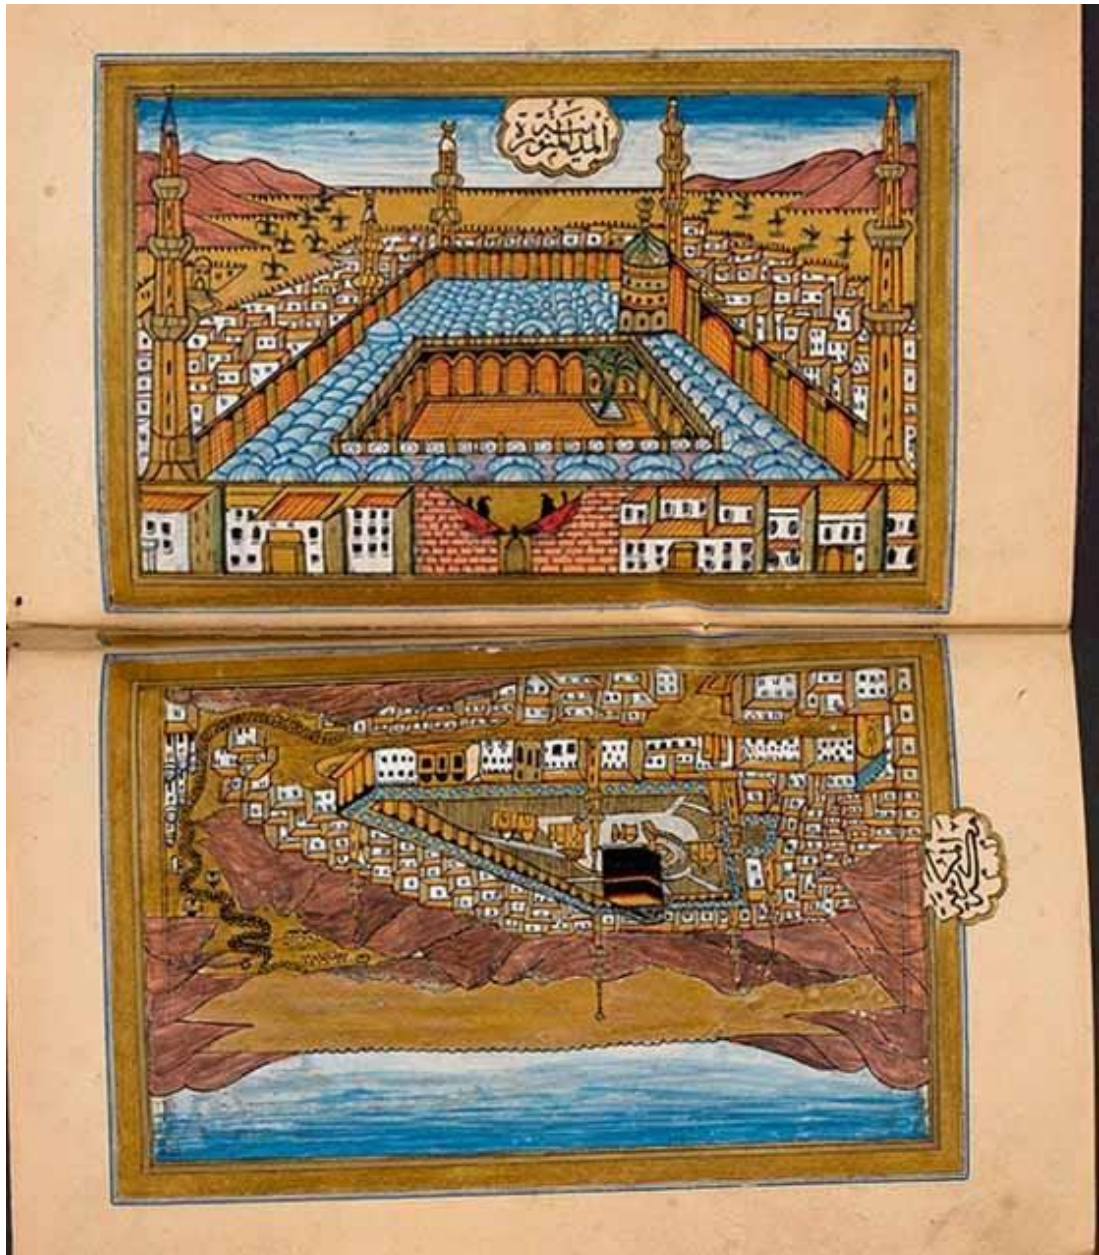 المدينة المنورة
مكة المكرمة